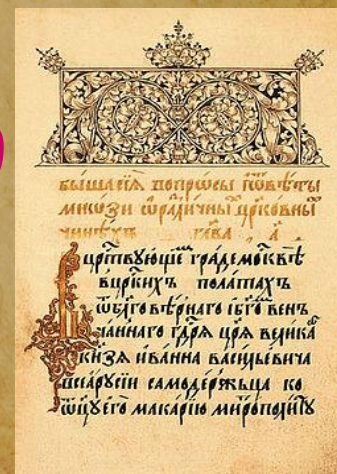 быша сїѧ вопрѡсы и ѿвѣты
мнѡзи ѡ разли́чны црⷪ҇ковны
чи́нѣхъ глава̀ а҃
В црⷭ҇твующе гра́де москвѣ̀
в цр҃кихъ полатахъ
ѿ бл҃говѣ́рнаго и бг҃ѡ венъ
ча́ннаго гдⷭ҇рѧ црѧ̀ вели́ка
кн҃зѧ ива́нна васи́льевича
всеѧ̀ рꙋсі́и самоде́ржьца ко
ѿцꙋ̀ его̀ мака́рїю митрополи́тꙋ